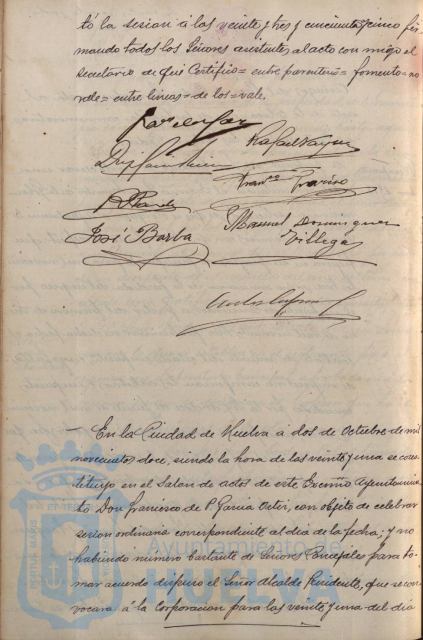 tó la sesion á las veinte y tres y cincuenta y cinco fir
mando todos los Señores asistentes al acto con migo el
secretario de que Certifico = entre parentesis = fomento = no
vale = entre lineas = de los = vale.
Rafael Vazquez
José Barba
Manuel Dominguez
Villegas
En la Ciudad de Huelva á dos de Octubre de mil
novecientos doce, siendo la hora de las veinte y una se cons
tituyo en el Salon de actos de este Excmo Ayuntamien
to Don Francisco de P. Garcia Ortiz, con objeto de celebrar
sesion ordinaria correspondiente al dia de la fecha, y no
habiendo numero bastante de Señores Concejales para to
mar acuerdo dispuso el Señor Alcalde Presidente, que se con
vocara á la Corporacion para las veinte y una del dia
HUELVA